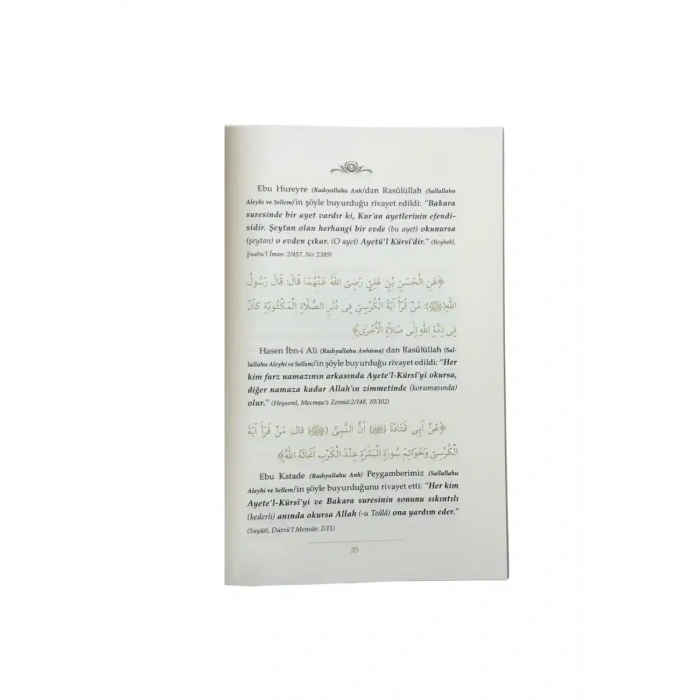 Ebu Hureyre (Radıyallahu Anh)'dan Rasûlüllah (Sallallahu
Aleyhi ve Sellem)'in şöyle buyurduğu rivayet edildi: "Bakara
suresinde bir ayet vardır ki, Kur'an ayetlerinin efendi-
sidir. Şeytan olan herhangi bir evde (bu ayet) okunursa
(şeytan) o evden çıkar. (O ayet) Ayetü'l Kürsî'dir." (Beyhekî,
Şuabu'l Îman: 2/457, No: 2389)
﴿عَنِ الْحَسَنِ بْنِ عَلِيٍّ رَضِيَ اللهُ عَنْهُمَا قَالَ: قَالَ رَسُولُ
اللهِ(ﷺ): مَنْ قَرَأَ آيَةَ الْكُرْسِيِّ فِي دُبُرِ الصَّلَاةِ الْمَكْتُوبَةِ كَانَ
فِي ذِمَّةِ اللهِ إِلَى صَلَاةِ الْأُخْرَى﴾
Hasen İbn-i Ali (Radıyallahu Anhüma) dan Rasûlüllah (Sal-
lallahu Aleyhi ve Sellem)'in şöyle buyurduğu rivayet edildi: "Her
kim farz namazının arkasında Ayete'l-Kürsî'yi okursa,
diğer namaza kadar Allah'ın zimmetinde (korumasında)
olur." (Heysemî, Mecmau'z Zevaid:2/148, 10/102)
﴿عَنْ أَبِي قَتَادَةَ (ﷺ) أَنَّ النَّبِيَّ (ﷺ) قَالَ: مَنْ قَرَأَ آيَةَ
الْكُرْسِيِّ وَخَوَاتِمَ سُورَةِ الْبَقَرَةِ عِنْدَ الْكَرْبِ أَغَاثَهُ اللهُ﴾
Ebu Katade (Radıyallahu Anh) Peygamberimiz (Sallallahu
Aleyhi ve Sellem)'in şöyle buyurduğunu rivayet etti: "Her kim
Ayete'l-Kürsî'yi ve Bakara suresinin sonunu sıkıntılı
(kederli) anında okursa Allah (-u Teâlâ) ona yardım eder."
(Suyûtî, Dürrü'l Mensûr: 2/11)
35